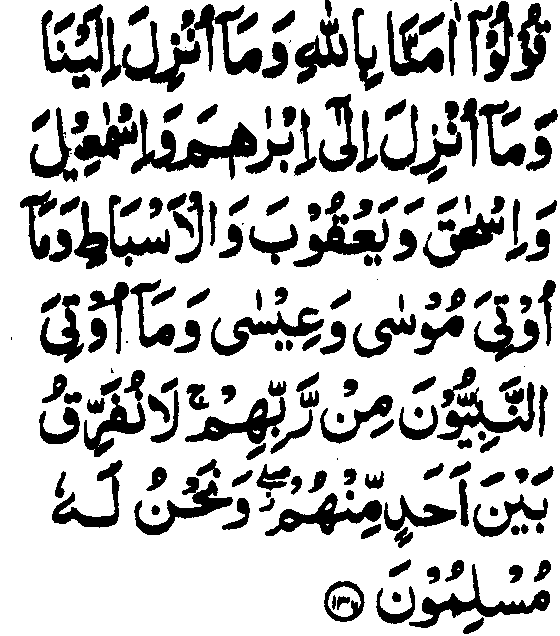 قُوْلُوْٓا اٰمَنَّا بِاللّٰهِ وَمَآ اُنْزِلَ اِلَيْنَا
وَمَآ اُنْزِلَ اِلٰٓى اِبْرٰهٖمَ وَاِسْمٰعِيْلَ
وَاِسْحٰقَ وَيَعْقُوْبَ وَالْاَسْبَاطِ وَمَآ
اُوْتِيَ مُوْسٰى وَعِيْسٰى وَمَآ اُوْتِيَ
النَّبِيُّوْنَ مِنْ رَّبِّهِمْ ۚ لَا نُفَرِّقُ
بَيْنَ اَحَدٍ مِّنْهُمْ ۖ وَنَحْنُ لَهٗ
مُسْلِمُوْنَ ﴿١٣٦﴾